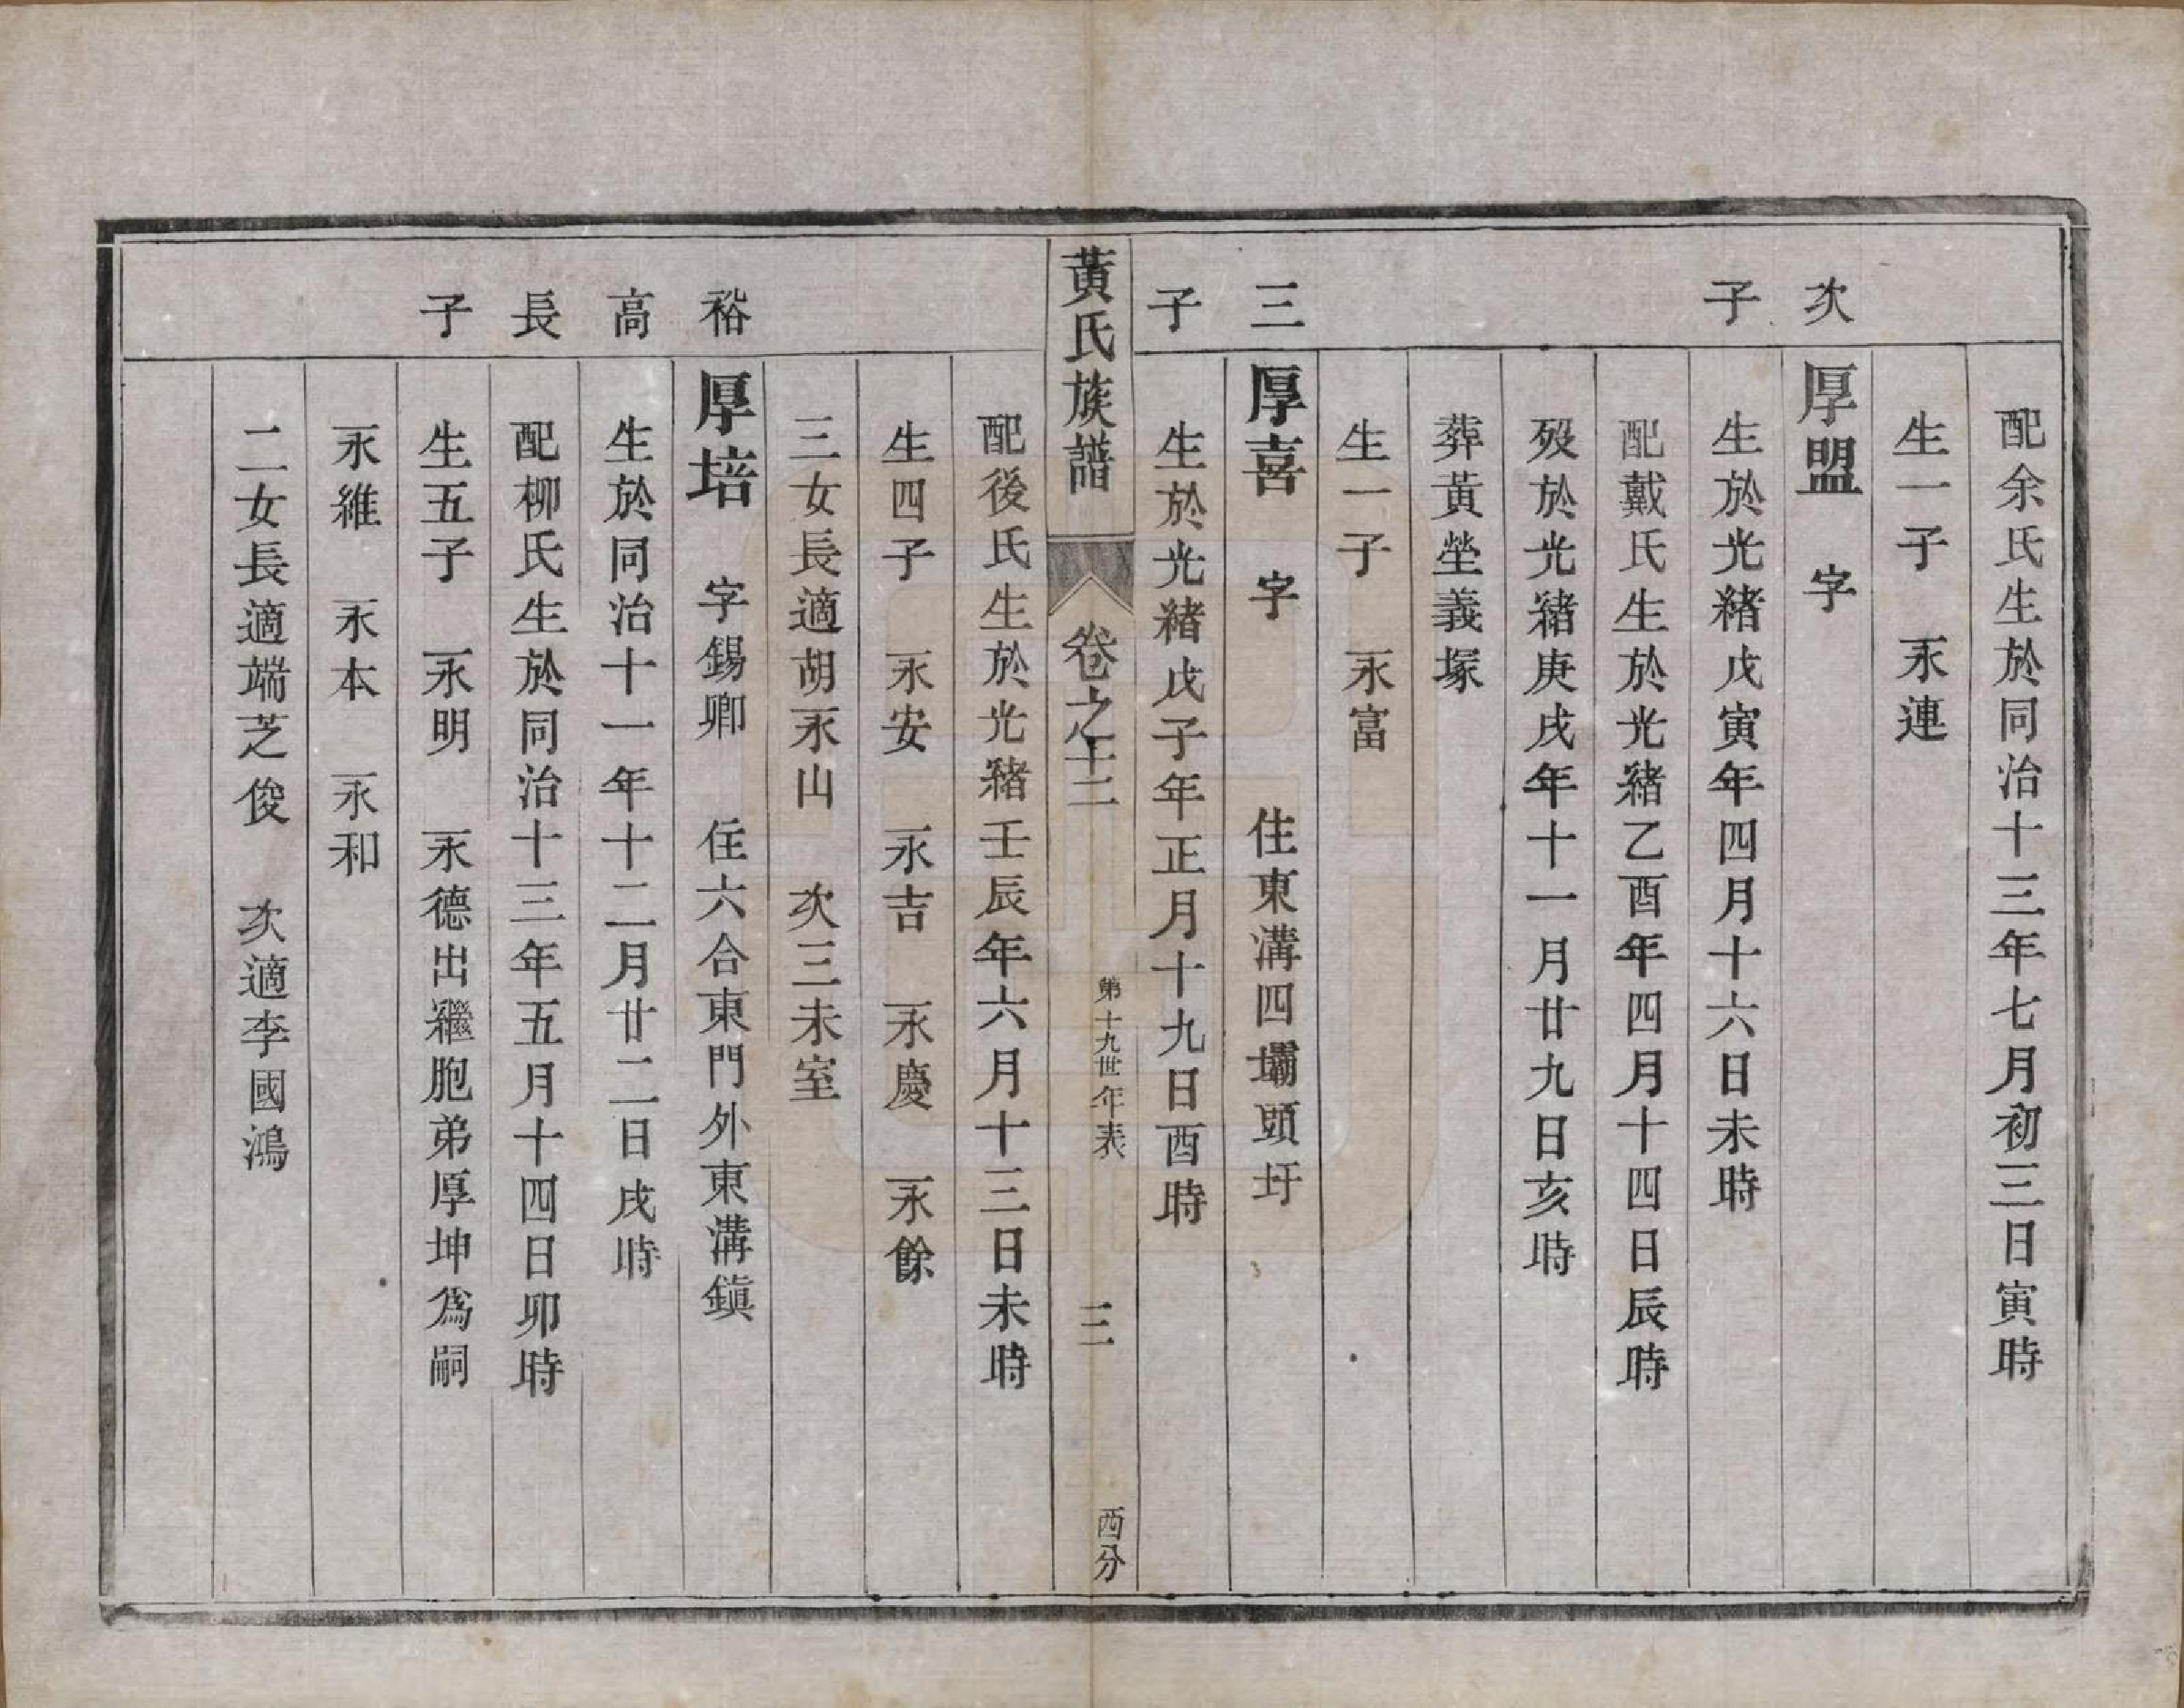 配余氏生於同治十三年七月初三日寅時
生一子　永連
次子
厚盟　字
生於光緒戊寅年四月十六日未時
配戴氏生於光緒乙酉年四月十四日辰時
歿於光緒庚戌年十一月廿九日亥時
葬黃塋義塚
生一子　永富
三子
厚喜　字　　住東溝四壩頭圩
生於光緒戊子年正月十九日酉時
黃氏族譜　卷之十二　第十九世年表　三　西分
配後氏生於光緒壬辰年六月十三日未時
生四子　永安　永吉　永慶　永餘
三女長適胡永山　次三未室
裕高長子
厚培　字錫卿　住六合東門外東溝鎮
生於同治十一年十二月廿二日戌時
配柳氏生於同治十三年五月十四日卯時
生五子　永明　永德出繼胞弟厚坤為嗣
永維　永本　永和
二女長適端芝俊　次適李國鴻